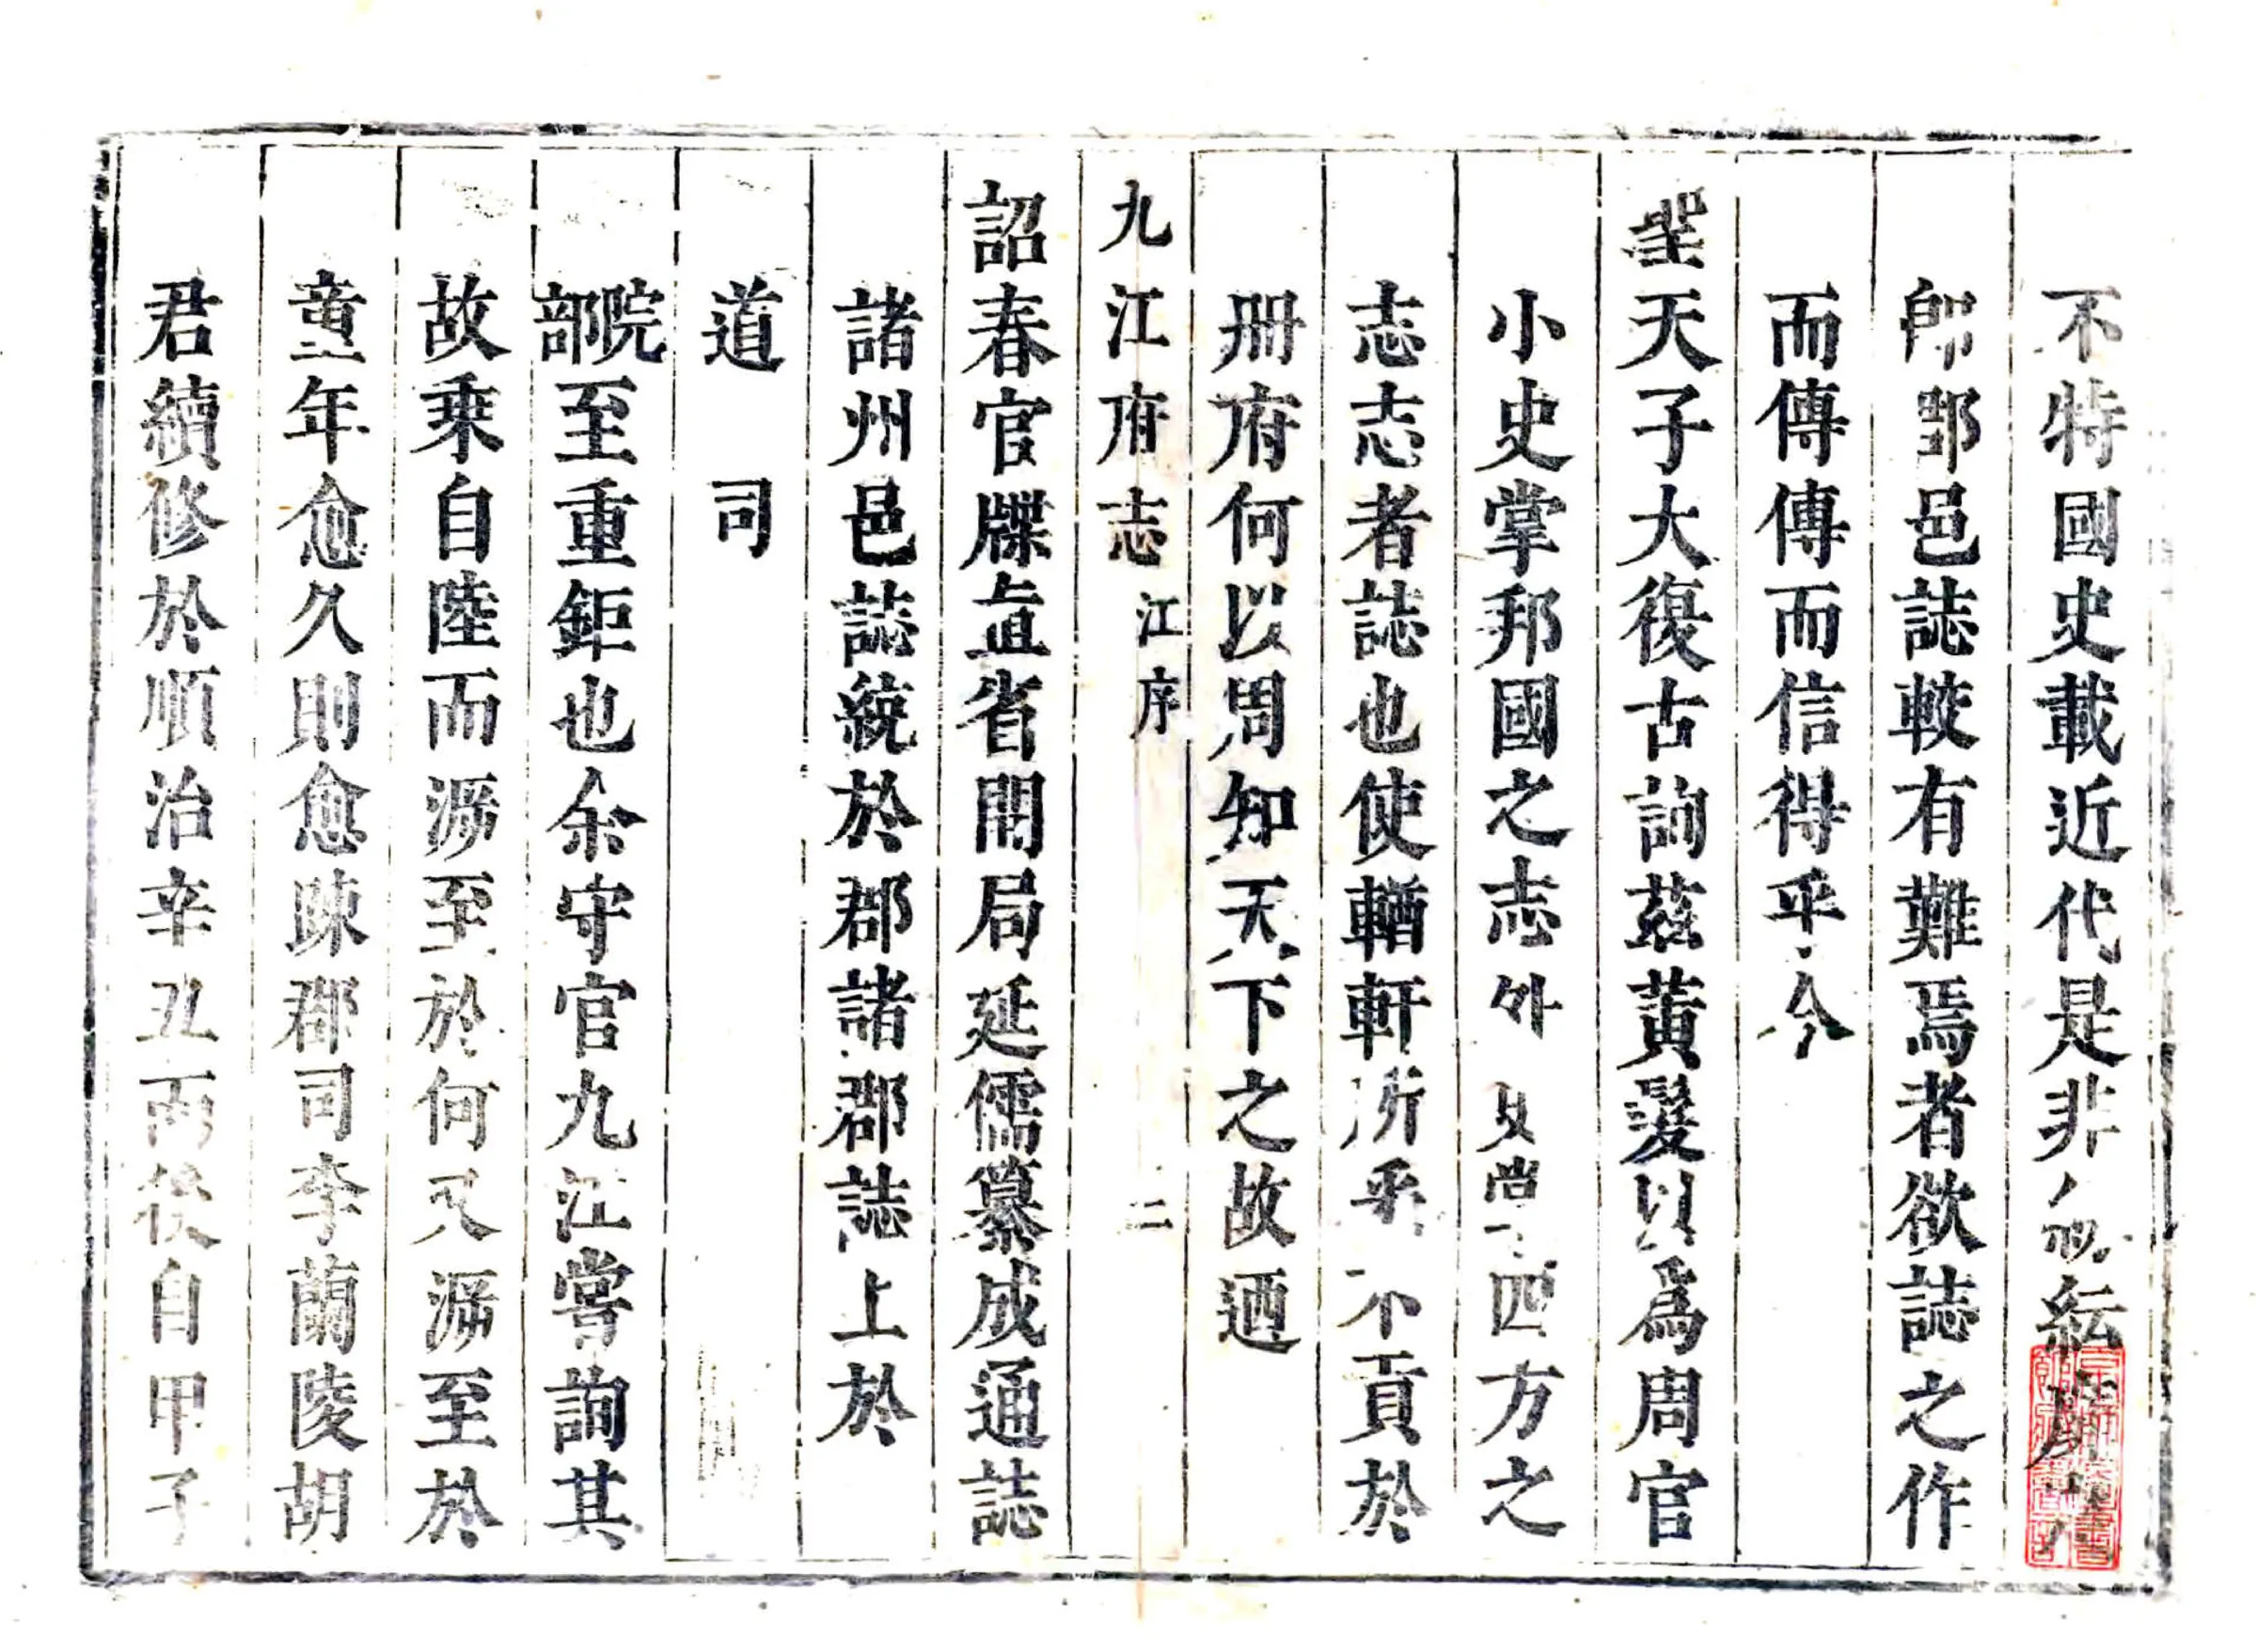 不特國史載近代是非紜
卽郡邑誌較有難焉者欲誌之作
而傳傳而信得乎今
聖天子大復古詢茲黃髮以爲周官
小史掌邦國之志外史掌四方之
志志者誌也使輶軒所采不貢於
冊府何以周知天下之故迺
九江府志 江序 二
詔春官牒直省開局延儒纂成通誌
諸州邑誌統於郡諸郡誌上於
道 司
部院至重鉅也余守官九江嘗詢其
故乘自陸而㴑至於何又㴑至於
童年愈久則愈踈郡司李蘭陵胡
君續修於順治辛丑丙後自甲子